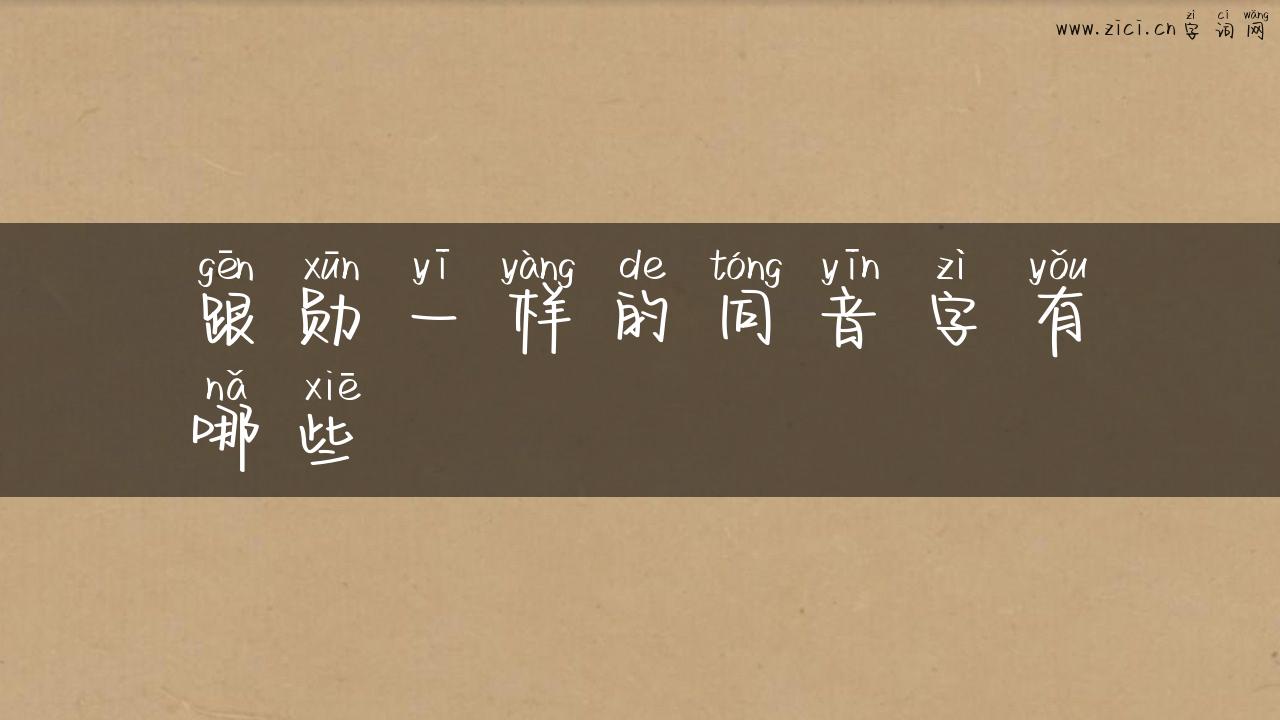 zì cí wǎng
www.zici.cn 字 词 网
gēn xūn yī yàng de tóng yīn zì yǒu
跟 勋 一 样 的 同 音 字 有
nǎ xiē
哪 些